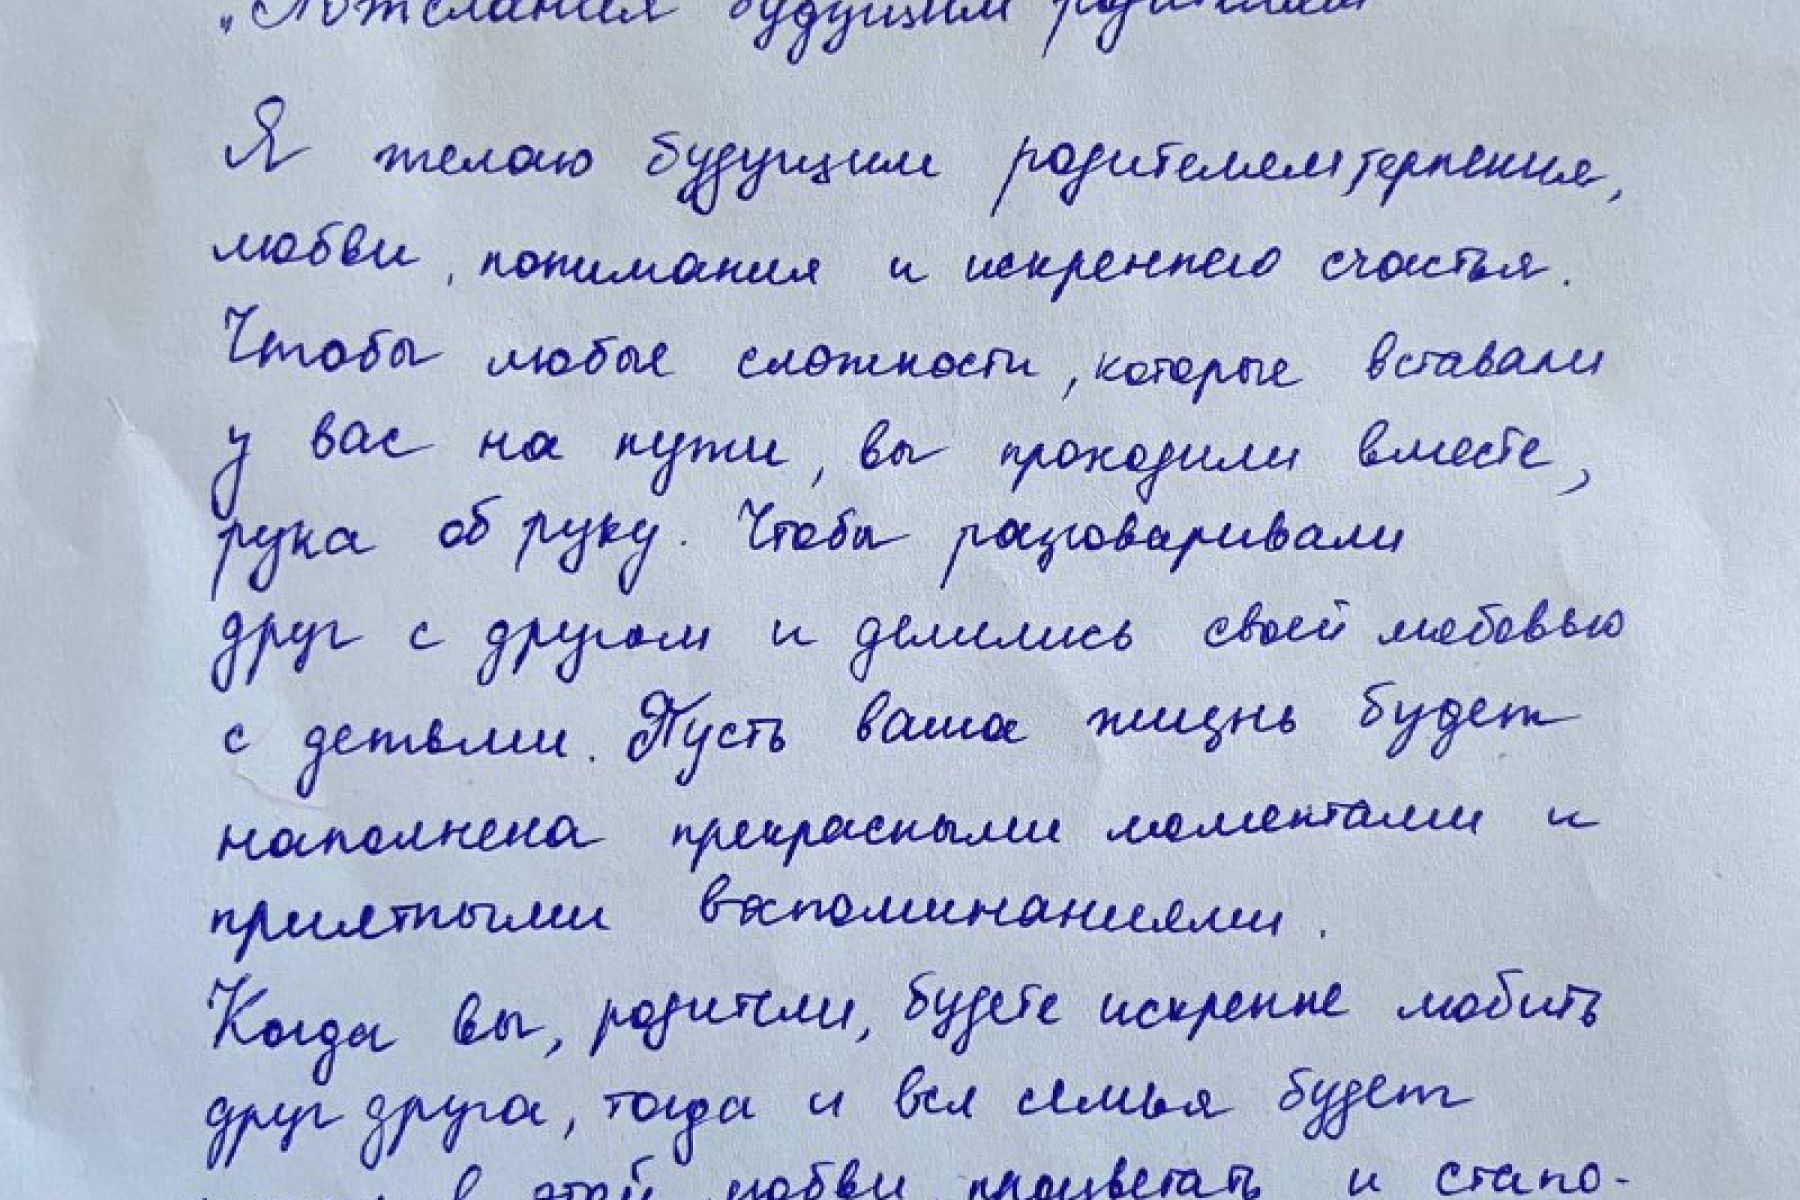 „Пожелания будущим родителям"
Я желаю будущим родителям терпения,
любви, понимания и искреннего счастья.
Чтобы любые сложности, которые вставали
у вас на пути, вы проходили вместе,
рука об руку. Чтобы разговаривали
друг с другом и делились своей любовью
с детьми. Пусть ваша жизнь будет
наполнена прекрасными моментами и
приятными воспоминаниями.
Когда вы, родители, будете искренне любить
друг друга, тогда и вся семья будет
в этой любви процветать и стано-